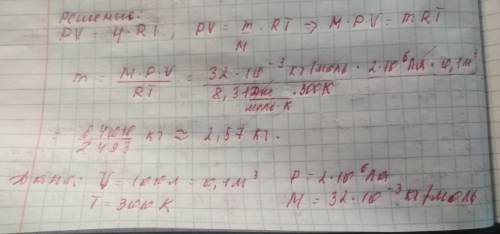 Решение:
PV = ν·RT, PV = m/M · RT → M·P·V = mRT
m = M·P·V / RT = 32·10⁻³ кг/моль · 2·10⁶ Па · 0,1 м³ / 8,31 Дж/моль·К · 300К
= 6400 / 2493 кг ≈ 2,57 кг.
Дано: V = 100л = 0,1 м³ P = 2·10⁶ Па
T = 300 К M = 32·10⁻³ кг/моль